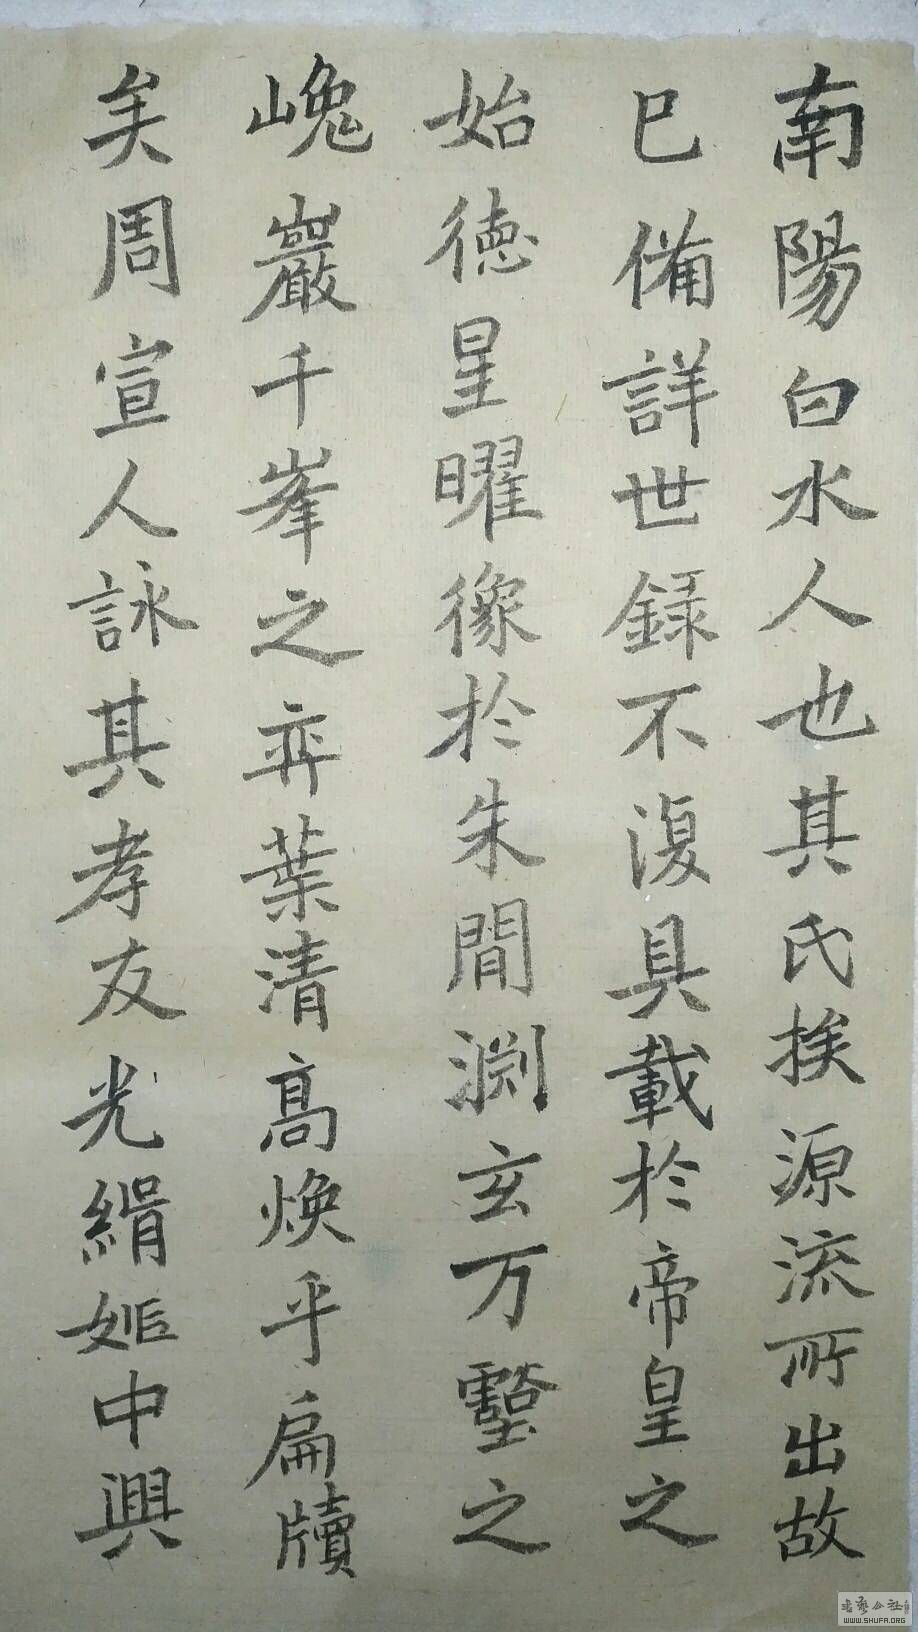 南陽白水人也其氏族源流所出故
已備詳世録不復具載於帝皇之
始德星曜像於朱閒渊玄万壑之
巉巖千峯之弈葉清高煥乎扁牘
矣周宣人詠其孝友光緝姬中興
WWW.SHUFA.ORG